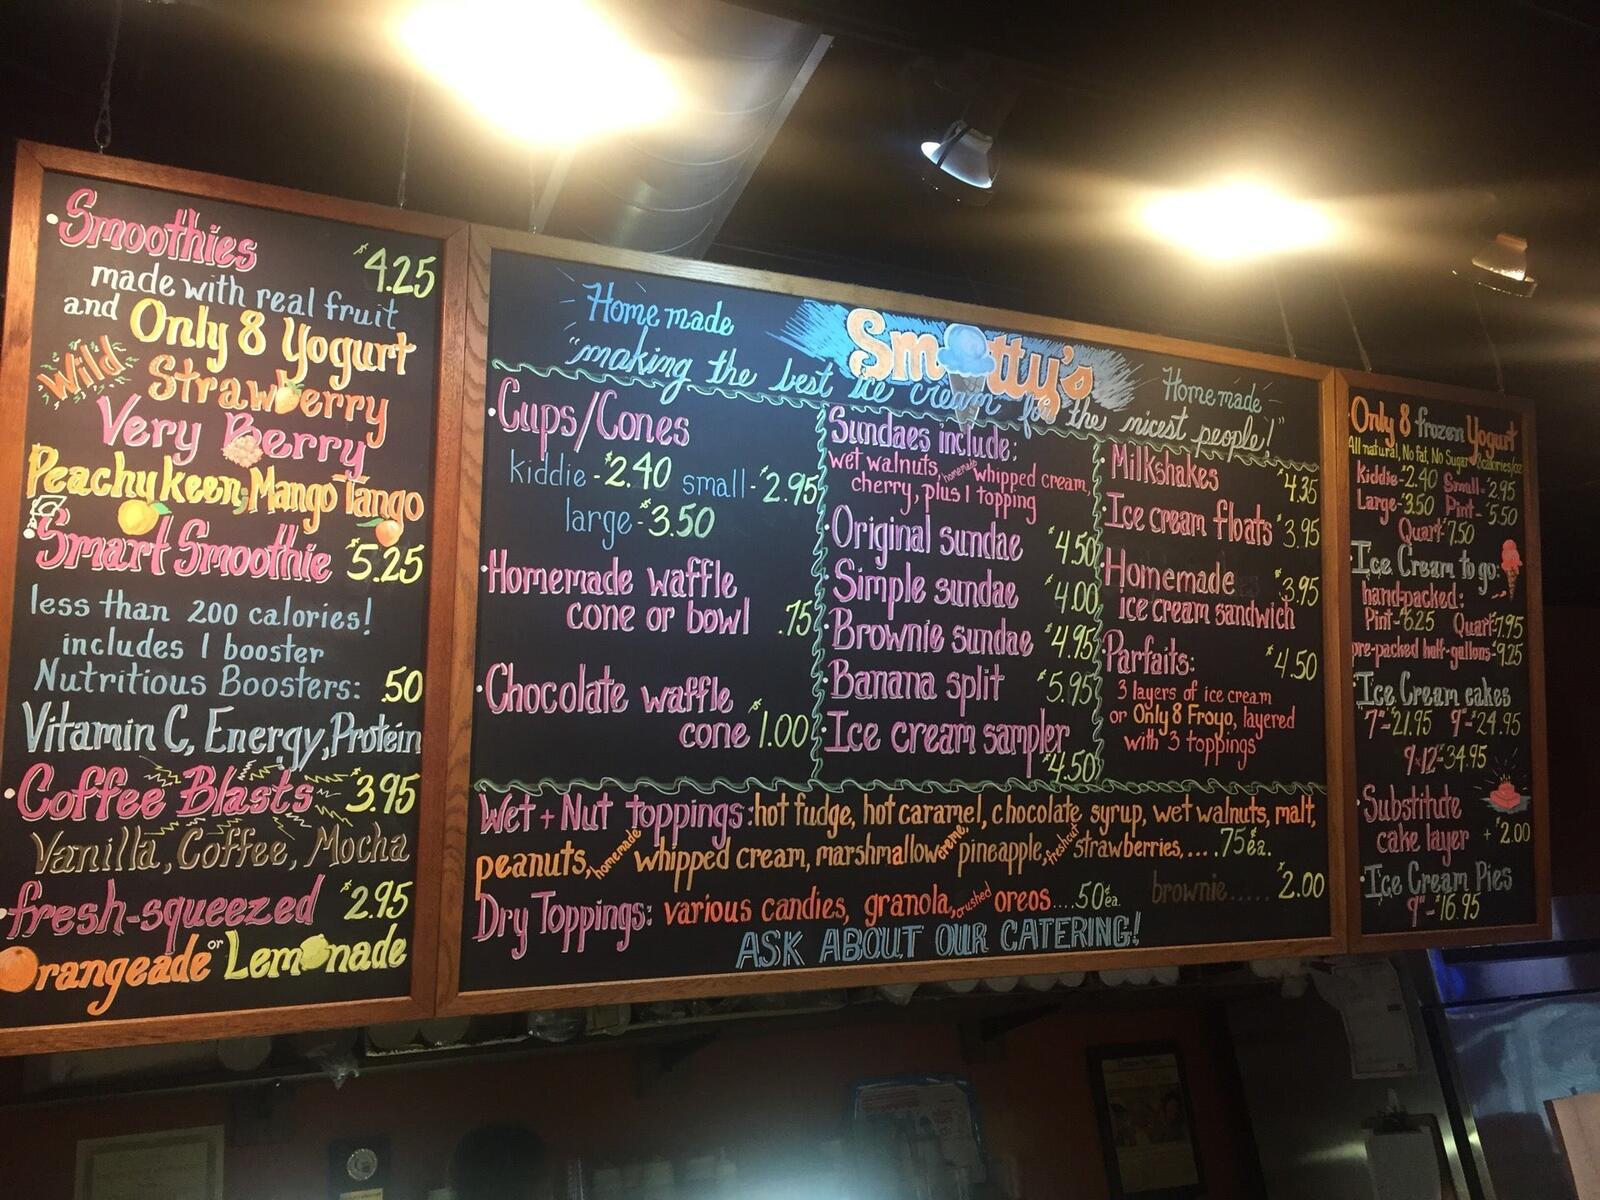 Smoothies $4.25
made with real fruit
and Only 8 Yogurt
Wild Strawberry
Very Berry
Peachy keen, Mango Tango
Smart Smoothie $5.25
less than 200 calories!
includes 1 booster
Nutritious Boosters: .50
Vitamin C, Energy, Protein
Coffee Blasts $3.95
Vanilla, Coffee, Mocha
fresh-squeezed $2.95
Orangeade or Lemonade
Home made Smotty's Home made
"making the best ice cream for the nicest people!"
Cups/Cones
kiddie - $2.40 small - $2.95
large - $3.50
Homemade waffle
cone or bowl .75
Chocolate waffle
cone $1.00
Sundaes include:
wet walnuts, homemade whipped cream,
cherry, plus 1 topping
Original sundae $4.50
Simple sundae $4.00
Brownie sundae $4.95
Banana split $5.95
Ice cream sampler
$4.50
Milkshakes $4.35
Ice cream floats $3.95
Homemade $3.95
ice cream sandwich
Parfaits: $4.50
3 layers of ice cream
or Only 8 Froyo, layered
with 3 toppings
Wet + Nut toppings: hot fudge, hot caramel, chocolate syrup, wet walnuts, malt,
peanuts, homemade whipped cream, marshmallow creme, pineapple, fresh cut strawberries,.... .75 ea.
Dry Toppings: various candies, granola, crushed oreos....50 ea. brownie..... $2.00
ASK ABOUT OUR CATERING!
Only 8 frozen Yogurt
All natural, No fat, No Sugar 8 calories/oz
Kiddie - $2.40 Small - $2.95
Large - $3.50 Pint - $5.50
Quart - $7.50
Ice Cream to go:
hand-packed:
Pint - $6.25 Quart - $7.95
pre-packed half-gallons - $9.25
Ice Cream cakes
7" - $21.95 9" - $24.95
9x12 - $34.95
Substitute
cake layer + $2.00
Ice Cream Pies
9" - $16.95